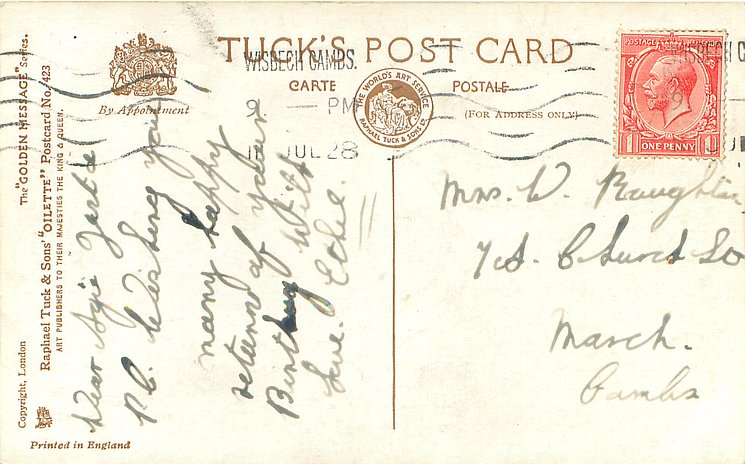 The "GOLDEN MESSAGE" Series.
Raphael Tuck & Sons' "OILETTE" Postcard No. 423
ART PUBLISHERS TO THEIR MAJESTIES THE KING & QUEEN.
Copyright, London
By Appointment
TUCK'S POST CARD
CARTE POSTALE
THE WORLD'S ART SERVICE
RAPHAEL TUCK & SONS LTD
(FOR ADDRESS ONLY)
WISBECH CAMBS.
9 — PM
JUL 28
POSTAGE
1 ONE PENNY 1
Dear
P.C. Wishing you
many happy
returns of your
Birthday With
love. Ethel.
Mrs. W.
Church St
March.
Cambs
Printed in England